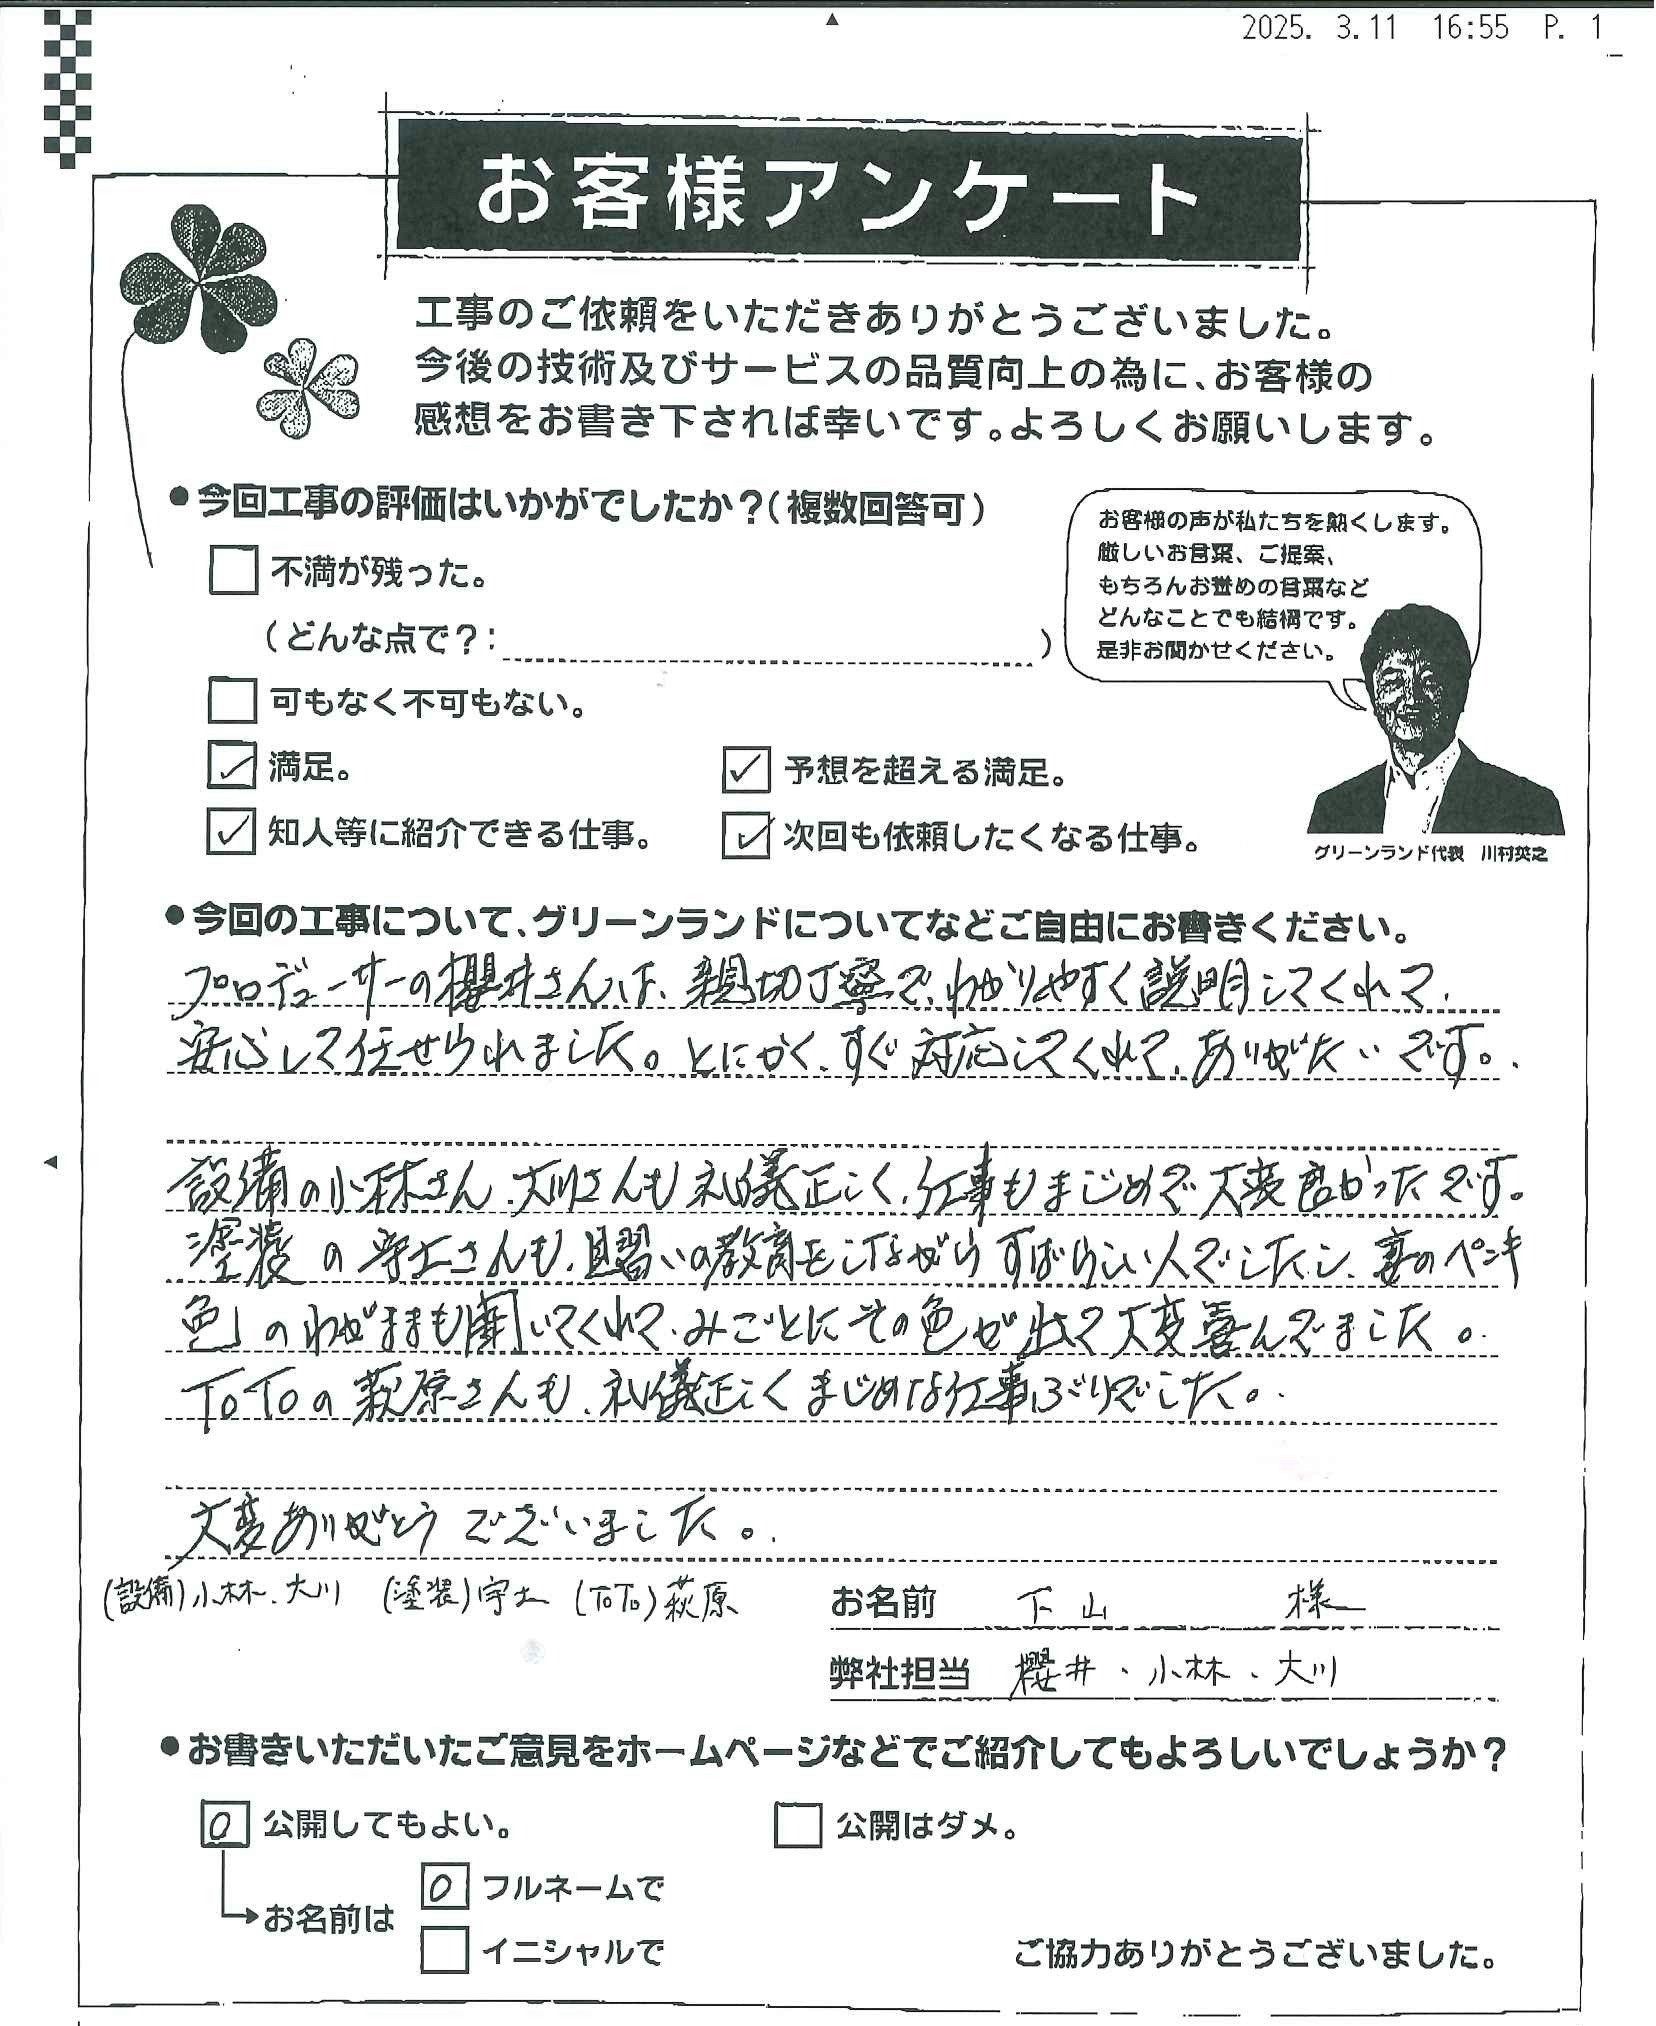 2025. 3.11 16:55 P. 1
お客様アンケート
工事のご依頼をいただきありがとうございました。
今後の技術及びサービスの品質向上の為に、お客様の
感想をお書き下されば幸いです。よろしくお願いします。
●今回工事の評価はいかがでしたか？(複数回答可)
不満が残った。
(どんな点で？: )
可もなく不可もない。
✓ 満足。
✓ 予想を超える満足。
✓ 知人等に紹介できる仕事。
✓ 次回も依頼したくなる仕事。
お客様の声が私たちを熱くします。
厳しいお言葉、ご提案、
もちろんお誉めの言葉など
どんなことでも結構です。
是非お聞かせください。
グリーンランド代表 川村英之
●今回の工事について、グリーンランドについてなどご自由にお書きください。
プロデューサーの櫻井さんは、親切丁寧で、わかりやすく説明してくれて、
安心して任せられました。とにかく、すぐ対応してくれて、ありがたいです。
設備の小林さん、大川さんも礼儀正しく、仕事もまじめで大変良かったです。
塗装の守土さんも、見習いの教育をしながらすばらしい人でしたし、妻のペンキ
色」のわがままも聞いてくれて、みごとにその色が出て大変喜んでました。
TOTOの萩原さんも、礼儀正しくまじめな仕事ぶりでした。
大変ありがとうございました。
(設備)小林、大川 (塗装)守土 (TOTO)萩原
お名前 下山 様
弊社担当 櫻井、小林、大川
●お書きいただいたご意見をホームページなどでご紹介してもよろしいでしょうか？
0 公開してもよい。
公開はダメ。
お名前は
0 フルネームで
イニシャルで
ご協力ありがとうございました。